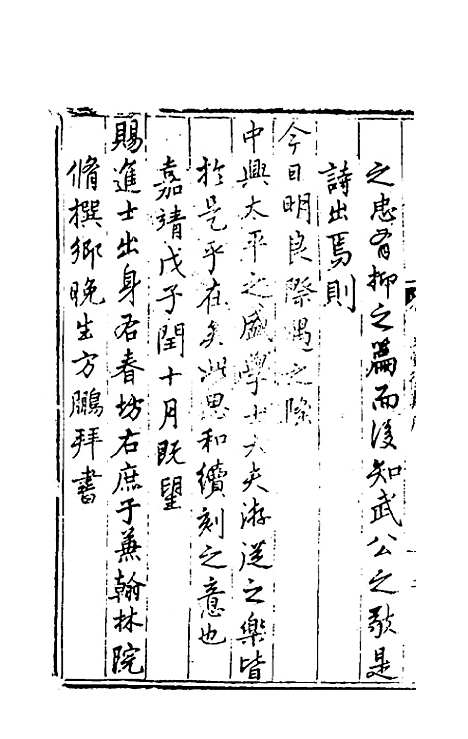 之忠有抑之篇而後知武公之敬是
詩出焉則
今日明良際遇之隆
中興太平之盛學士大夫游從之樂皆
於是乎在矣此思和續刻之意也
嘉靖戊子閏十月既望
賜進士出身右春坊右庶子兼翰林院
脩撰鄉晚生方鵬拜書